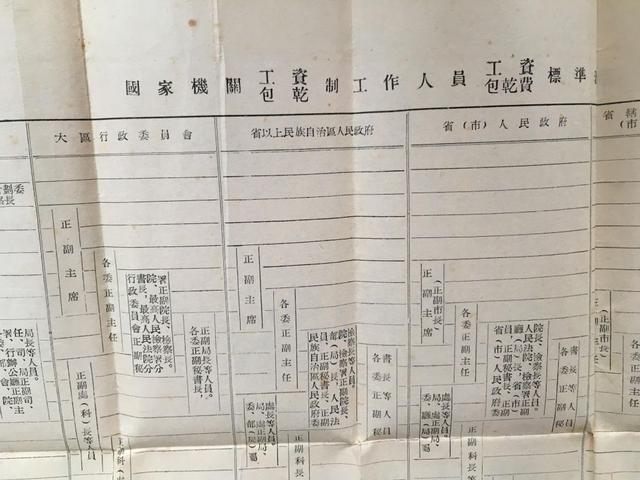 國家機關工資包乾制工作人員工資包乾費標準
大區行政委員會
省以上民族自治區人民政府
省(市)人民政府
省轄
(市
劃委
長
正副主席
各委正副主任
行政委員會正副秘
書長,最高人民法院分
院、最高人民檢察署分
署正副院長、檢察長。
各委正副秘書長,
正副局長等人員。
正副主席
各委正副主任
民族自治區人民政府委
員、正副秘書長、正副
部(局)長、人民法
院、檢察署正副院長、
檢察長等人員。
各委正副秘
書長等人員
正副主席
(正副市長)
各委正副主任
省(市)人民政府委
員、正副秘書長、正副
廳(局)長、省(市)
人民法院、檢察署正副
院長、檢察長等人員。
各委正副秘
書長等人員
(正副市長)
正副主席
署、行辦公廳正副主
任、司、局正副司、
局長等人員。
正副處(科)長等人員
委、部(局)屬
局、處正副局、
處長等人員。
正副科長
委、廳(局)屬
局、處正副局、
處長等人員。
正副科長等